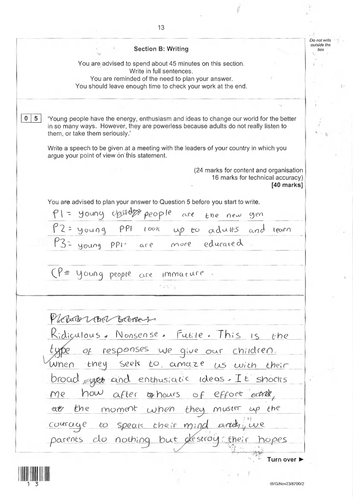 13
Do not write
outside the
box
Section B: Writing
You are advised to spend about 45 minutes on this section.
Write in full sentences.
You are reminded of the need to plan your answer.
You should leave enough time to check your work at the end.
0 5
'Young people have the energy, enthusiasm and ideas to change our world for the better
in so many ways. However, they are powerless because adults do not really listen to
them, or take them seriously.'
Write a speech to be given at a meeting with the leaders of your country in which you
argue your point of view on this statement.
(24 marks for content and organisation
16 marks for technical accuracy)
[40 marks]
You are advised to plan your answer to Question 5 before you start to write.
P1 = young people are the new gen
P2 = young PPl look up to adults and learn
P3 = young PPl are more educated
CP = young people are immature.
Ridiculous. Nonsense. Futile. This is the
type of responses we give our children
when they seek to amaze us with their
broad and enthusiatic ideas. It shocks
me how after hours of effort
at the moment when they muster up the
courage to speak their mind we
parents do nothing but destroy their hopes
Turn over ►
1 3
IB/G/Nov23/8700/2